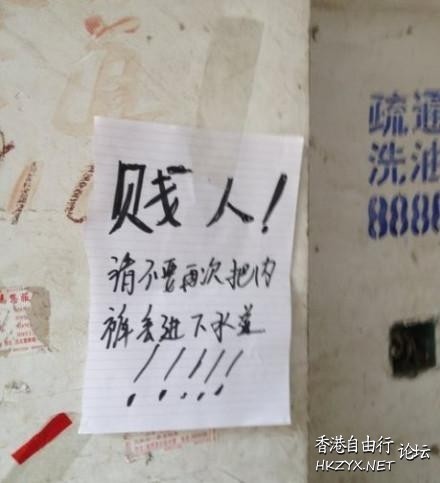 贱人!
请不要再次把内
裤丢进下水道
!!!!!
疏通
洗油
8888
香港自由行论坛
HKZYX.NET